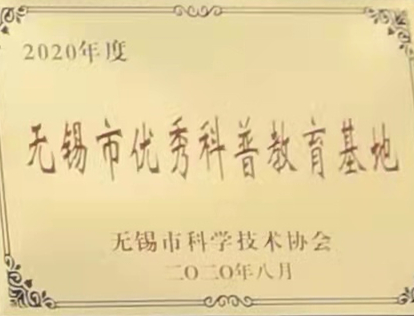 2020年度
无锡市优秀科普教育基地
无锡市科学技术协会
二〇二〇年八月